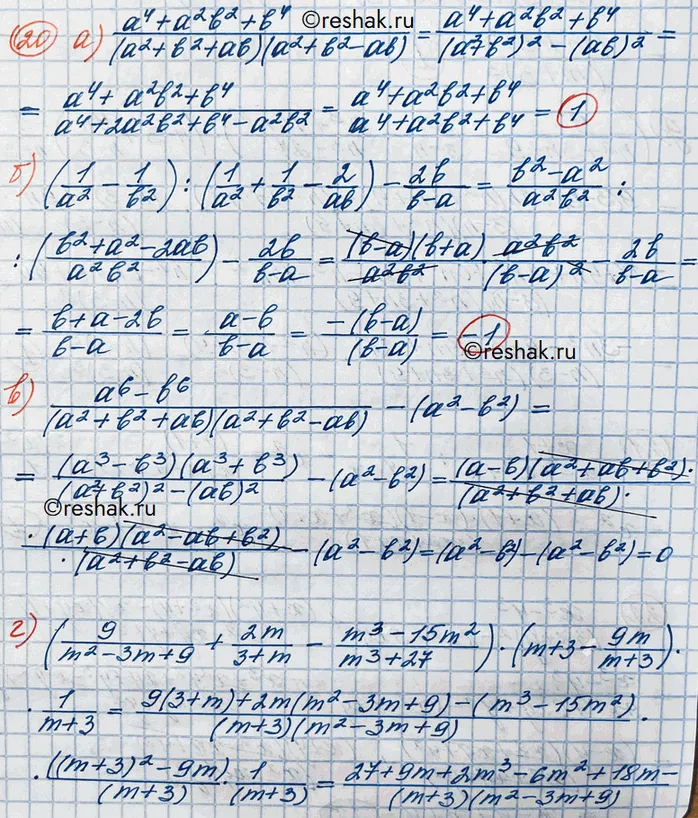 ©reshak.ru
20 а) (a⁴+a²b²+b⁴)/((a²+b²+ab)(a²+b²-ab)) = (a⁴+a²b²+b⁴)/((a²+b²)²-(ab)²) =
= (a⁴+a²b²+b⁴)/(a⁴+2a²b²+b⁴-a²b²) = (a⁴+a²b²+b⁴)/(a⁴+a²b²+b⁴) = 1
б) (1/a² - 1/b²) : (1/a² + 1/b² - 2/ab) - 2b/(b-a) = (b²-a²)/(a²b²) :
: ((b²+a²-2ab)/(a²b²)) - 2b/(b-a) = ((b-a)(b+a))/(a²b²) · (a²b²)/(b-a)² - 2b/(b-a) =
= (b+a-2b)/(b-a) = (a-b)/(b-a) = (-(b-a))/((b-a)) = -1
©reshak.ru
в) (a⁶-b⁶)/((a²+b²+ab)(a²+b²-ab)) - (a²-b²) =
= ((a³-b³)(a³+b³))/((a²+b²)²-(ab)²) - (a²-b²) = ((a-b)(a²+ab+b²)·)/((a²+b²+ab)·)
©reshak.ru
(·(a+b)(a²-ab+b²))/(·(a²+b²-ab)) - (a²-b²) = (a²-b²)-(a²-b²) = 0
г) (9/(m²-3m+9) + 2m/(3+m) - (m³-15m²)/(m³+27)) · (m+3 - 9m/(m+3)) ·
· 1/(m+3) = (9(3+m)+2m(m²-3m+9)-(m³-15m²))/((m+3)(m²-3m+9)) ·
· ((m+3)²-9m)/(m+3) · 1/(m+3) = (27+9m+2m³-6m²+18m-)/((m+3)(m²-3m+9))